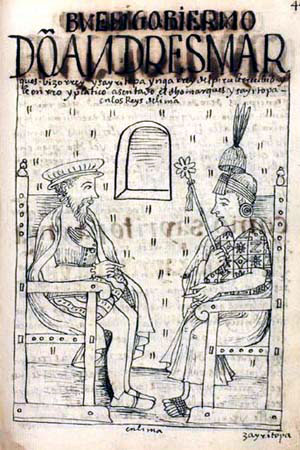 4
BVEN GOBIERNO
DŌ ANDRES MAR
ques · bizorrey y sayri topa ynga rey del piru le rrecibio y
le onrro y platico asentado el dho marques y sayri topa ·
en los Reys de lima
en lima
zayri topa